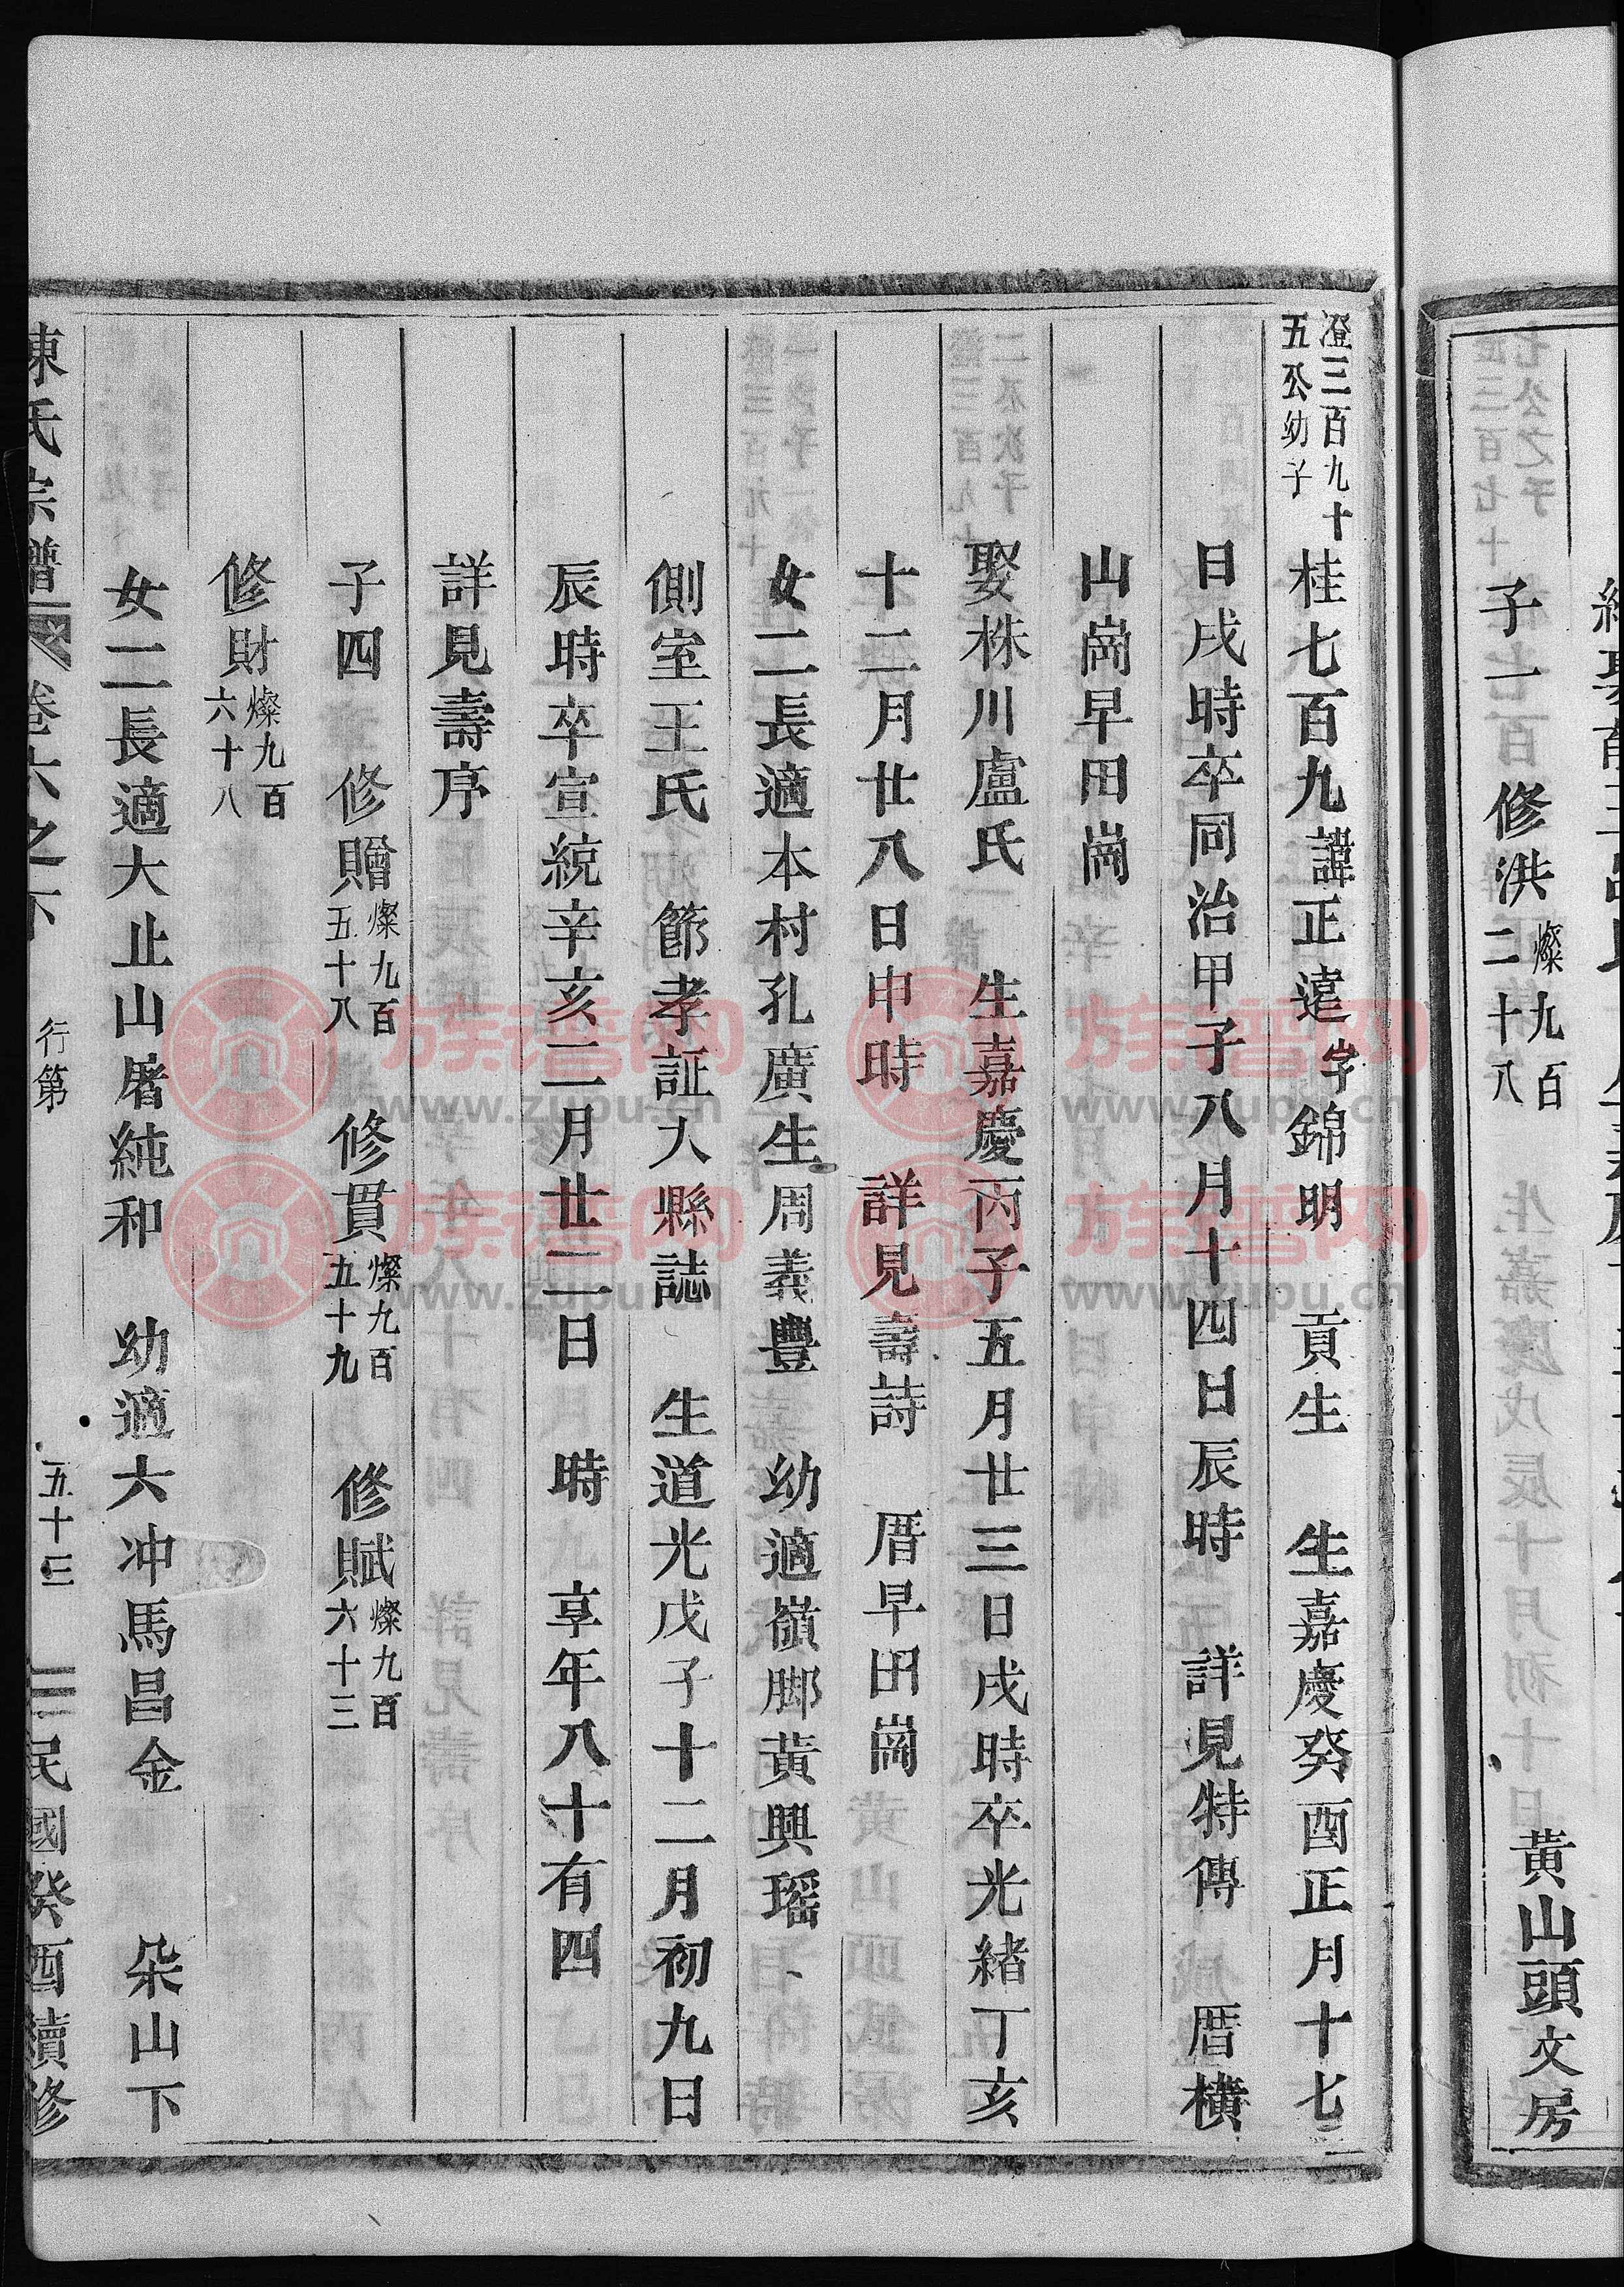 黃山頭文房
子一　修洪燦九百二十八
澄三百九十五公幼子　桂七百九諱正遠字錦明　貢生　生嘉慶癸酉正月十七
日戌時卒同治甲子八月十四日辰時　詳見特傳　厝橫
山崗早田崗
娶株川盧氏　生嘉慶丙子五月廿三日戌時卒光緒丁亥
十二月廿八日申時　詳見壽詩　厝早田崗
女二長適本村孔廣生周義豐　幼適嶺脚黃興瑶
側室王氏　節孝証入縣誌　生道光戊子十二月初九日
辰時卒宣統辛亥二月廿二日　時　享年八十有四
詳見壽序
子四　修贈燦九百五十八　修貫燦九百五十九　修賦燦九百六十三
修財燦九百六十八
女二長適大止山屠純和　幼適六冲馬昌金　朵山下
陳氏宗譜　卷六之下　行第　五十三　民國癸酉續修
族谱网
www.zupu.cn
族谱网
www.zupu.cn
族谱网
www.zupu.cn
族谱网
www.zupu.cn